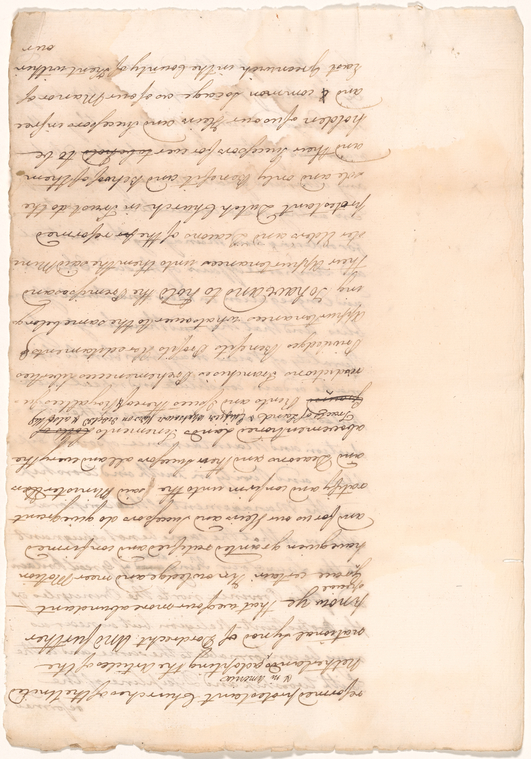 reformed protestant Churches of the United
Netherlands in America adopting the Articles of the
national Synod of Dordrecht And further
Know ye that we of our more abundant
Special Grace certain Knowledge and meer Motion
have given granted ratified and confirmed
and for us our Heirs and Successors do give grant
ratify and confirm unto the said Minister Elders
and Deacons and their Successors all and every the
abovementioned Lands Tenements
Rents and Issues thereof Royalties
Jurisdictions Franchises Preheminences Liberties
Priviledges Benefits Profits Hereditaments &
Appurtenances whatsoever to the same belong
ing To have and to hold the Premises and
their Appurtenances unto them the said Minis
ter Elders and Deacons of the reformed
protestant Dutch Church in Trust to the
sole and only Benefit and Behoof of them
and their Successors for ever to be
holden of us our Heirs and Successors in free
and common Socage as of our Manor of
East Greenwich in the County of Kent within
our